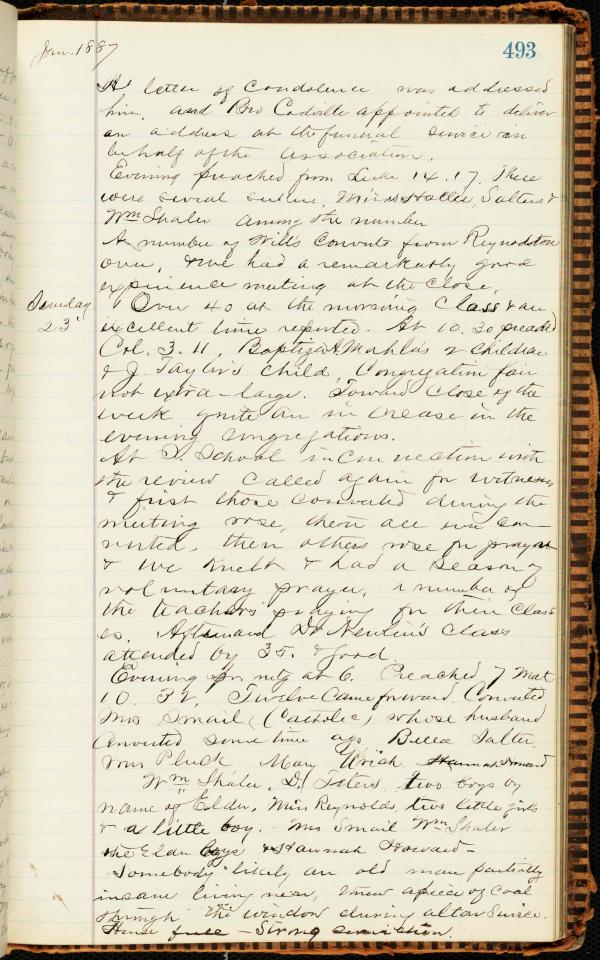 Jan. 1887
493
A letter of Condolence was addressed
him, and Bro Codville appointed to deliver
an address at the funeral service in
behalf of the Association.
Evening preached from Luke 14.17. There
were several seekers, Salters &
Wm Shaler among the number
A number of Wills Converts from Reynoldston
over, & we had a remarkably good
experience meeting at the close.
23
Over 40 at the morning Class & an
excellent time reported. At 10.30 preached
Col. 3. 11, Baptized children
& J. Taylor's child. Congregation fair
not extra-large. Toward close of the
week quite an increase in the
evening congregations.
At S. School in Connection with
the review called again for witnesses
& first those converted during the
meeting rose, then all who con-
verted, then others rose for prayer
& we knelt & had a season of
voluntary prayer, a number of
the teachers praying for their Class
es. Afterward Dr Newlin's Class
attended by 35. & good.
Evening pr. mtg at 6. Preached 7 Mat
10. 32. Twelve came forward. Converted
Mrs Smail (Catholic) whose husband
Converted some time ago Salter
Pluck Mary Hannah Howard
Wm Shaler, D. two boys by
name of Elder, Miss Reynolds, two little girls
& a little boy. Mrs Smail Wm Shaler
the Elder boys & Hannah Howard -
Somebody likely an old man partially
insane living near, threw a piece of coal
through the window during altar service.
House full - Strong conviction.